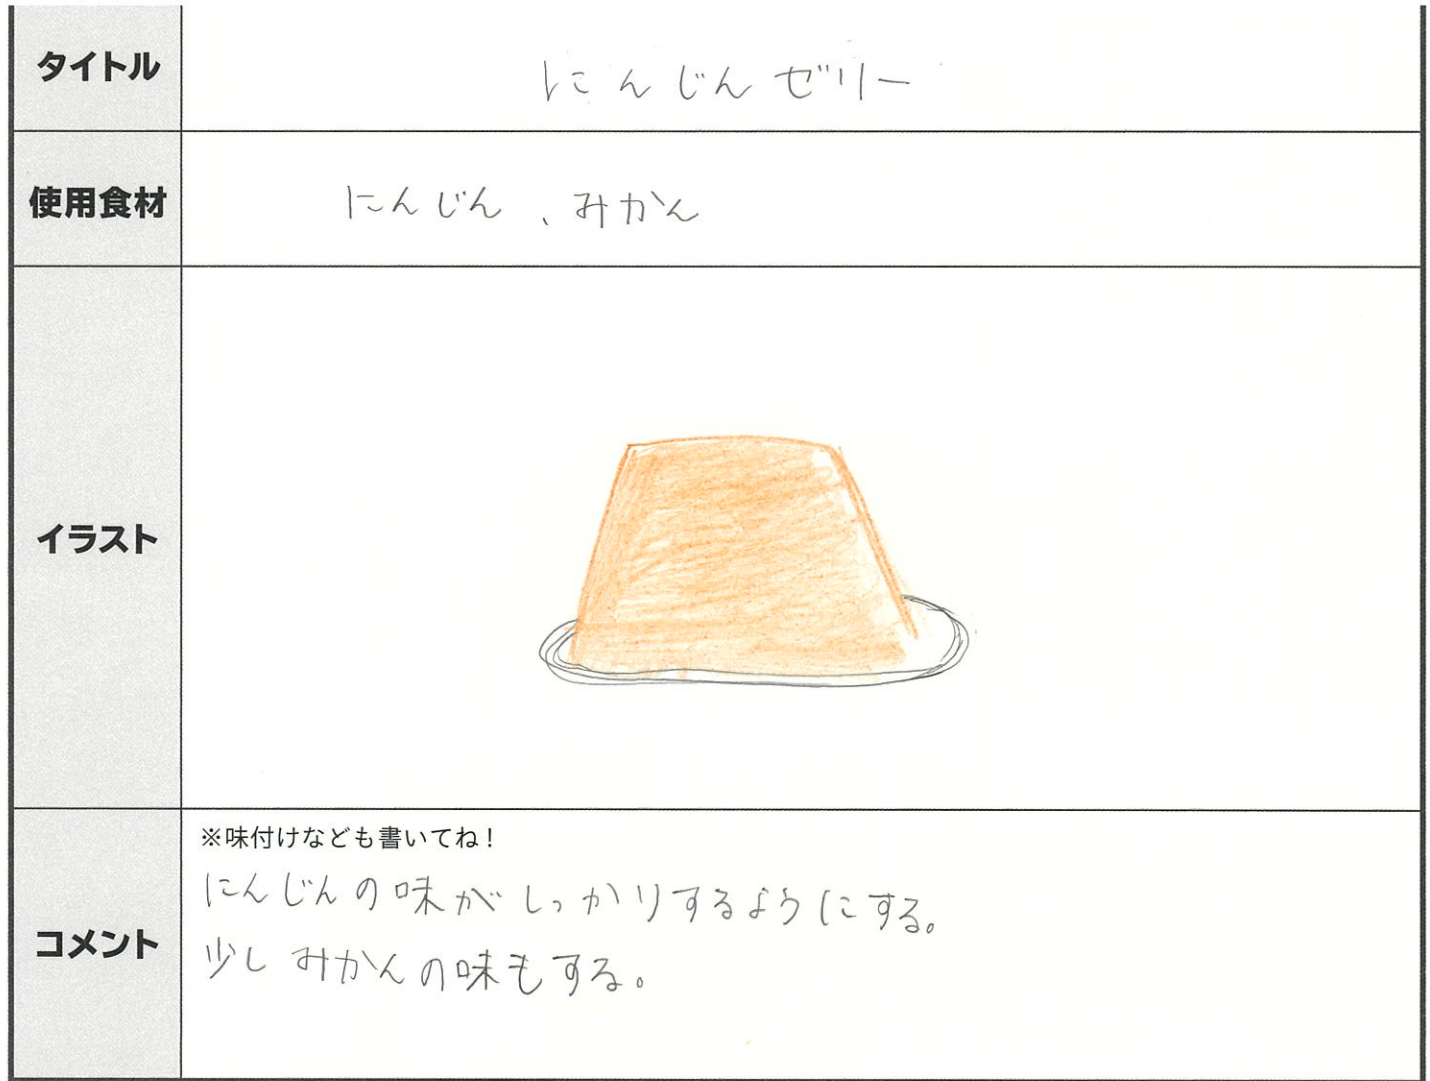 タイトル
にんじんゼリー
使用食材
にんじん、みかん
イラスト
コメント
※味付けなども書いてね！
にんじんの味がしっかりするようにする。
少しみかんの味もする。